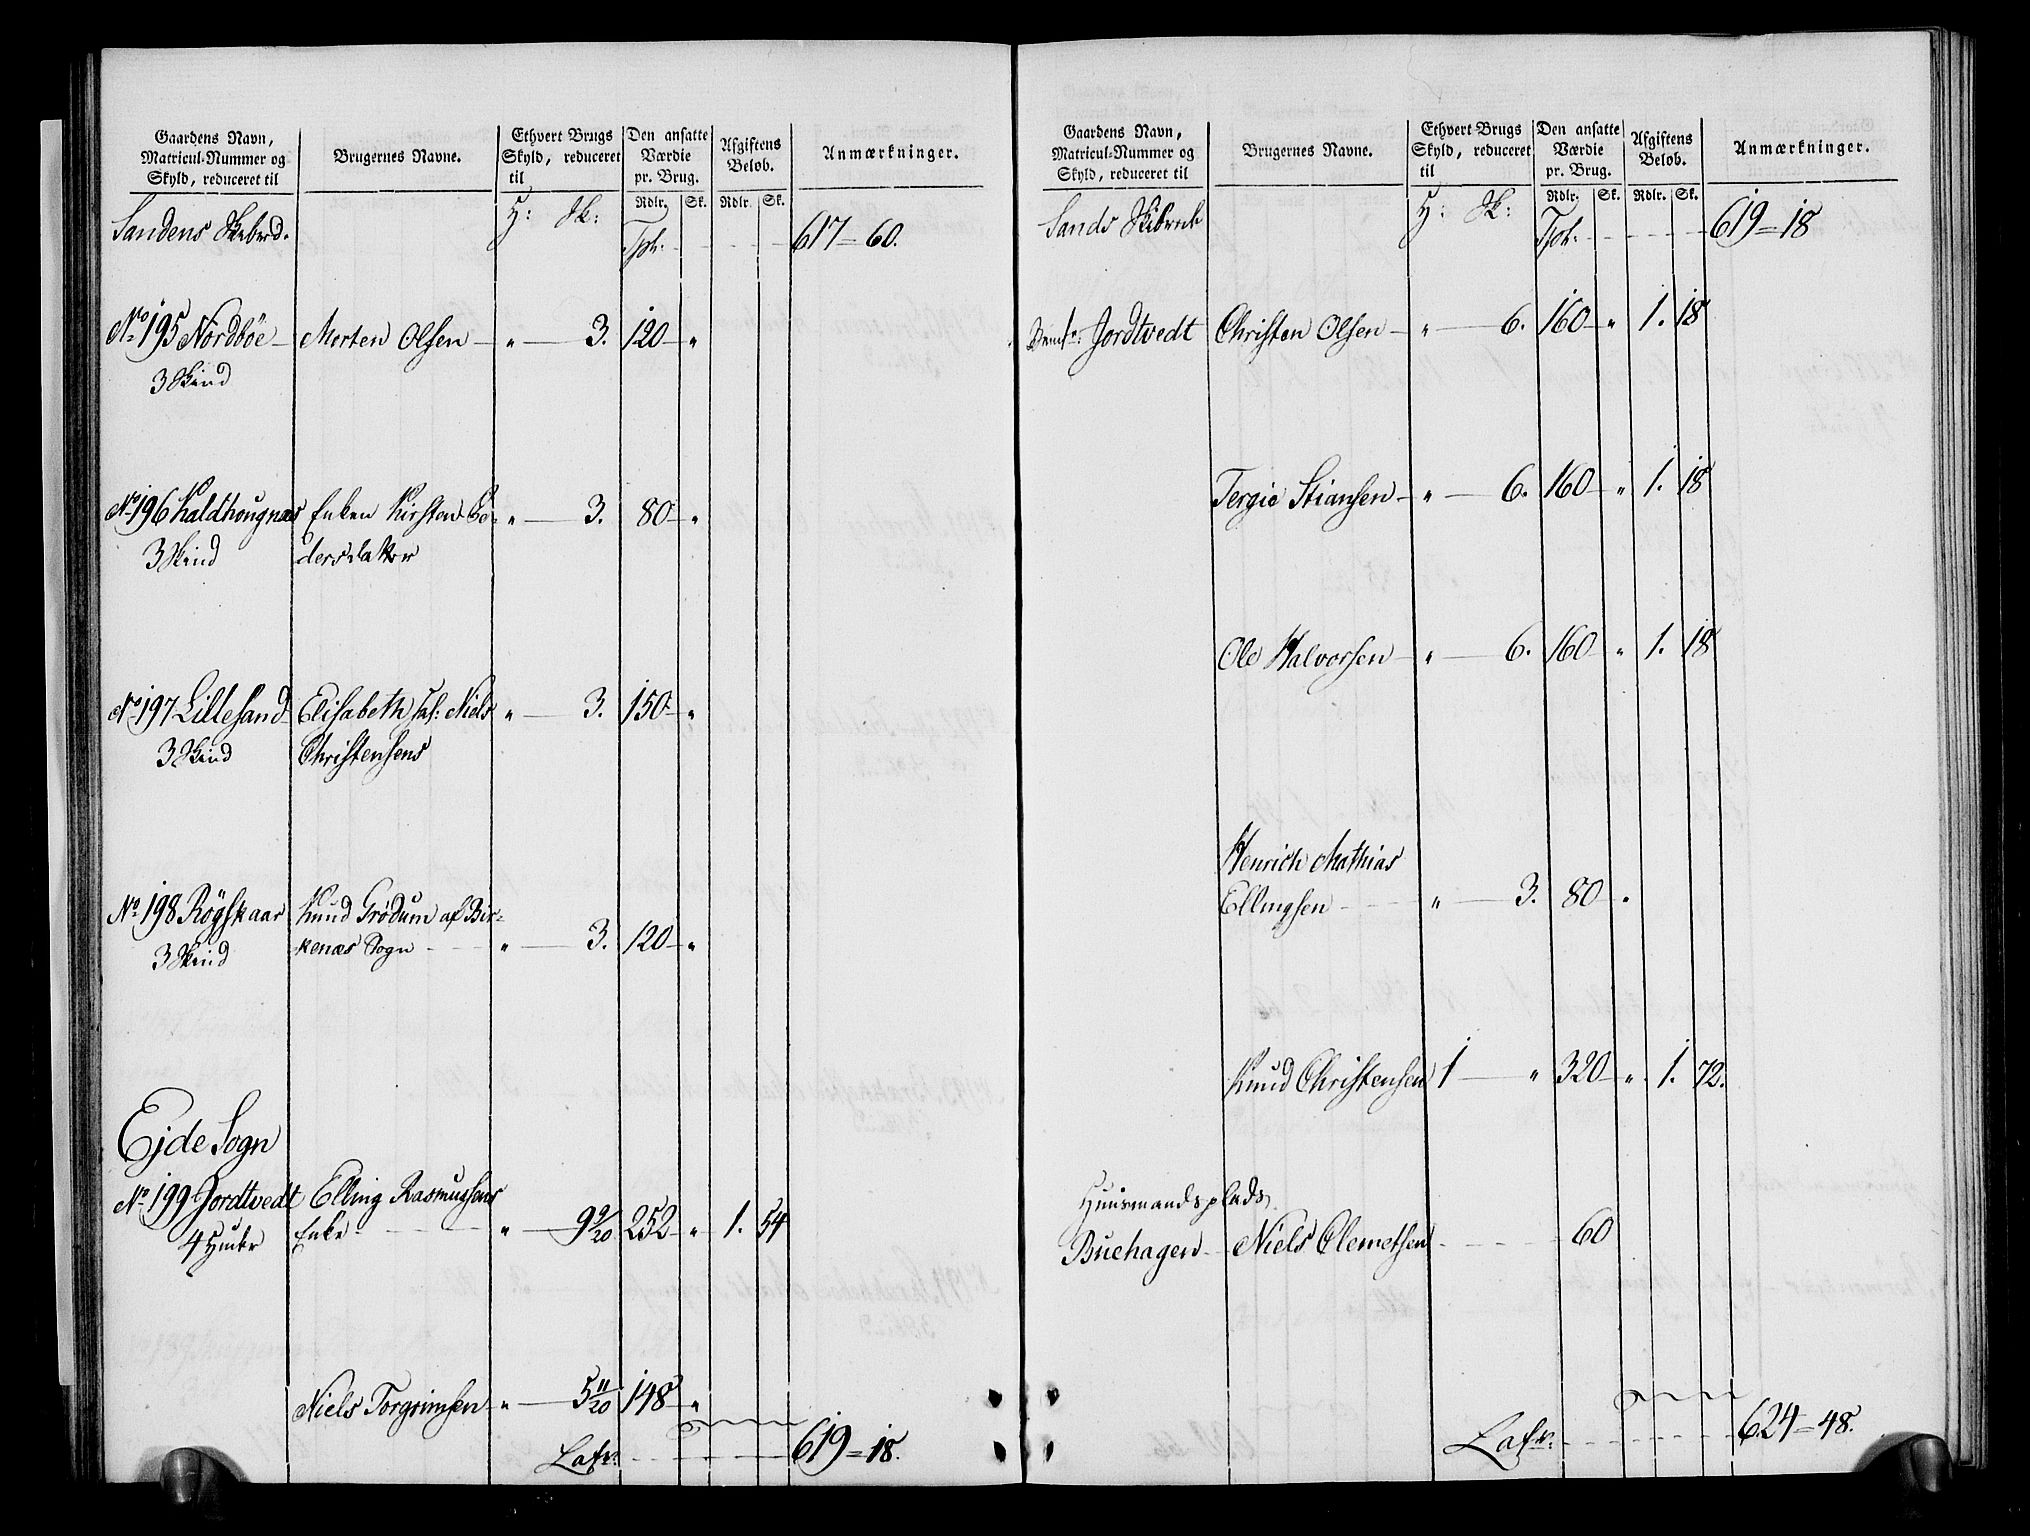 Gaardens Navn, Matricul-Nummer og Skyld, reduceret til
Brugernes Navne.
Ethvert Brugs Skyld, reduceret til
Den ansatte Værdie pr. Brug.
Afgiftens Beløb.
Anmærkninger.
Rdlr. Sk. Rdlr. Sk.
Sandens Skibrd. H: Sk: Tpt. 617=60.
No 195 Nordbøe Morten Olsen " 3. 120 "
3 Skind
No 196 Kaldhougnæs Enken Kirsten Pe- " 3. 80 "
3 Skind dersdatter
No 197 Lillesand Elisabeth sal: Niels " 3. 150 "
3 Skind Christensens
No 198 Røgskaar Knud Grödum af Bir-
3 Skind kenæs Sogn " 3. 120 "
Ejde Sogn
No 199 Jordtvedt Elling Rasmussens
4 Huder Enke " 9 9/20 252 " 1. 54
Niels Torgrimsen " 5 11/20 148 "
Latr. 619=18.
Gaardens Navn, Matricul-Nummer og Skyld, reduceret til
Brugernes Navne.
Ethvert Brugs Skyld, reduceret til
Den ansatte Værdie pr. Brug.
Afgiftens Beløb.
Anmærkninger.
Rdlr. Sk. Rdlr. Sk.
Sands Skibrede H: Sk: Tpt. 619=18
Jordtvedt Christen Olsen " 6. 160 " 1. 18
Tergie Stiansen " 6. 160 " 1. 18
Ole Halvorsen " 6. 160 " 1. 18
Henrich Mathias
Ellingsen " 3. 80 "
Knud Christensen 1 " 320 " 1. 72.
Huusmandsplads
Buehagen Niels Clemetsen 60
Latr. 624=48.